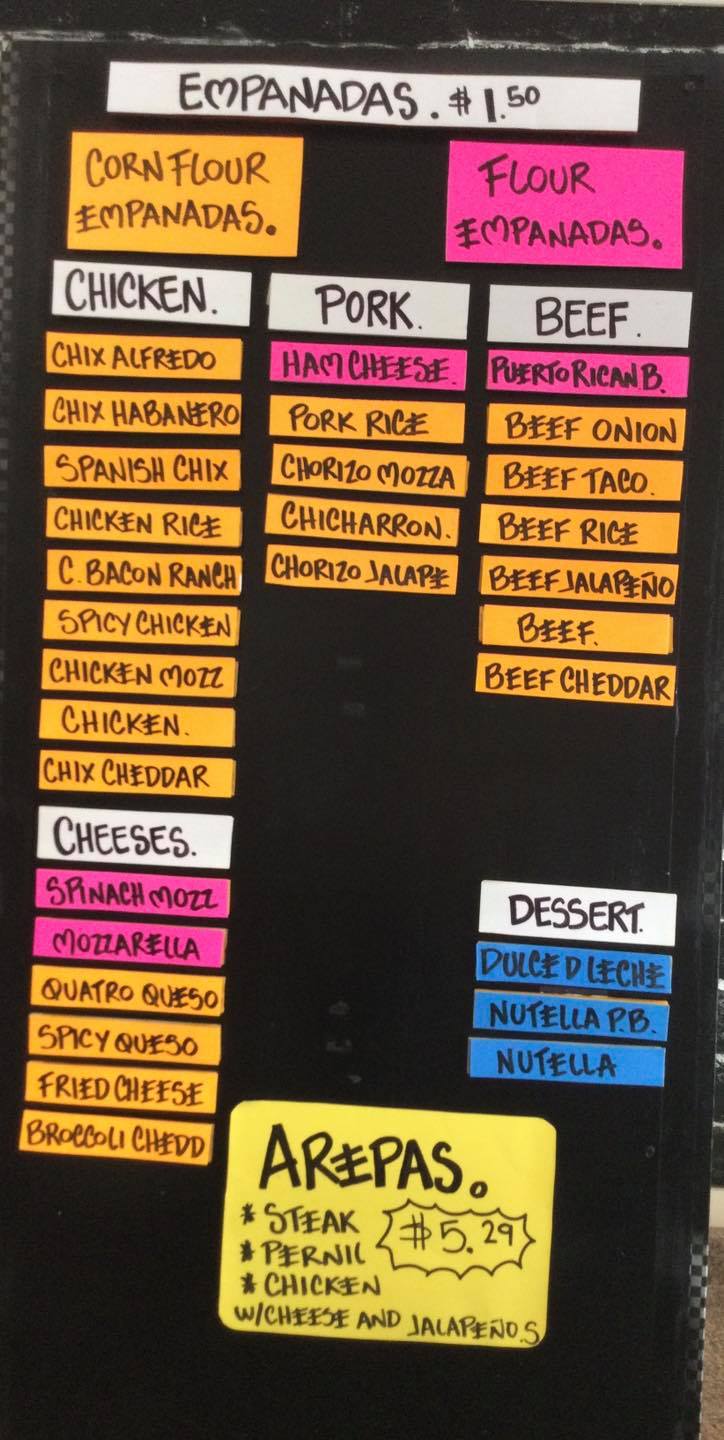 EMPANADAS. $1.50
CORN FLOUR
EMPANADAS.
FLOUR
EMPANADAS.
CHICKEN.
CHIX ALFREDO
CHIX HABANERO
SPANISH CHIX
CHICKEN RICE
C. BACON RANCH
SPICY CHICKEN
CHICKEN MOZZ
CHICKEN.
CHIX CHEDDAR
CHEESES.
SPINACH MOZZ
MOZZARELLA
QUATRO QUESO
SPICY QUESO
FRIED CHEESE
BROCCOLI CHEDD
PORK.
HAM CHEESE.
PORK RICE
CHORIZO MOZZA
CHICHARRON.
CHORIZO JALAPE
BEEF.
PUERTO RICAN B.
BEEF ONION
BEEF TACO.
BEEF RICE
BEEF JALAPEÑO
BEEF.
BEEF CHEDDAR
DESSERT.
DULCE D LECHE
NUTELLA P.B.
NUTELLA
AREPAS.
* STEAK
* PERNIL
* CHICKEN
$5.29
W/CHEESE AND JALAPEÑO.S